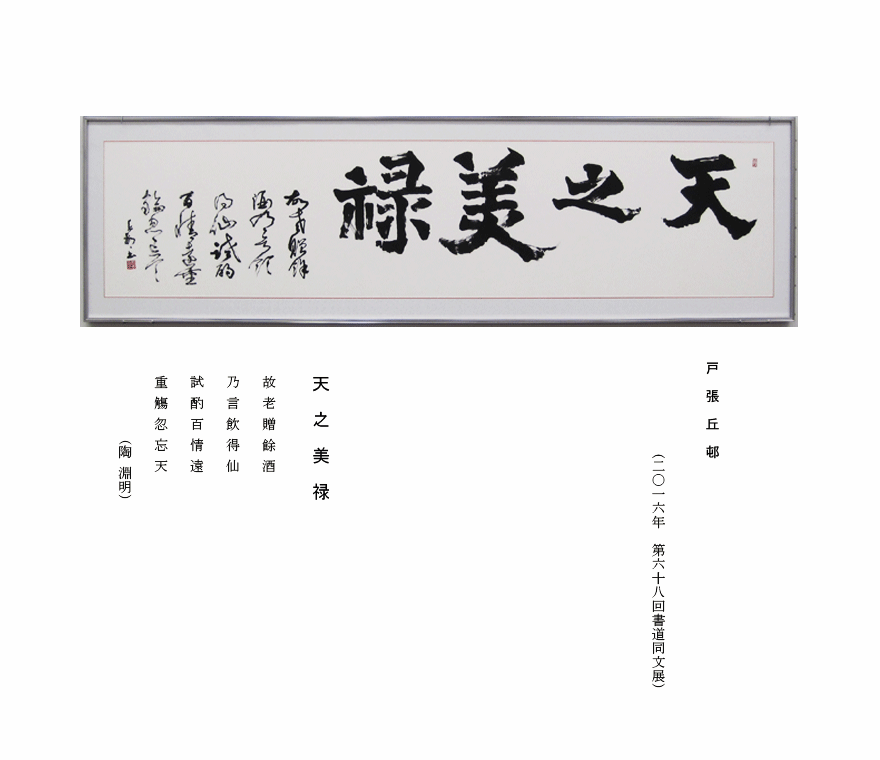 天之美禄
故老贈餘
酒乃言飲
得仙試酌
百情遠重
觴忽忘天
戸張丘邨
(二〇一六年 第六十八回書道同文展)
天之美禄
故老贈餘酒
乃言飲得仙
試酌百情遠
重觴忽忘天
(陶淵明)